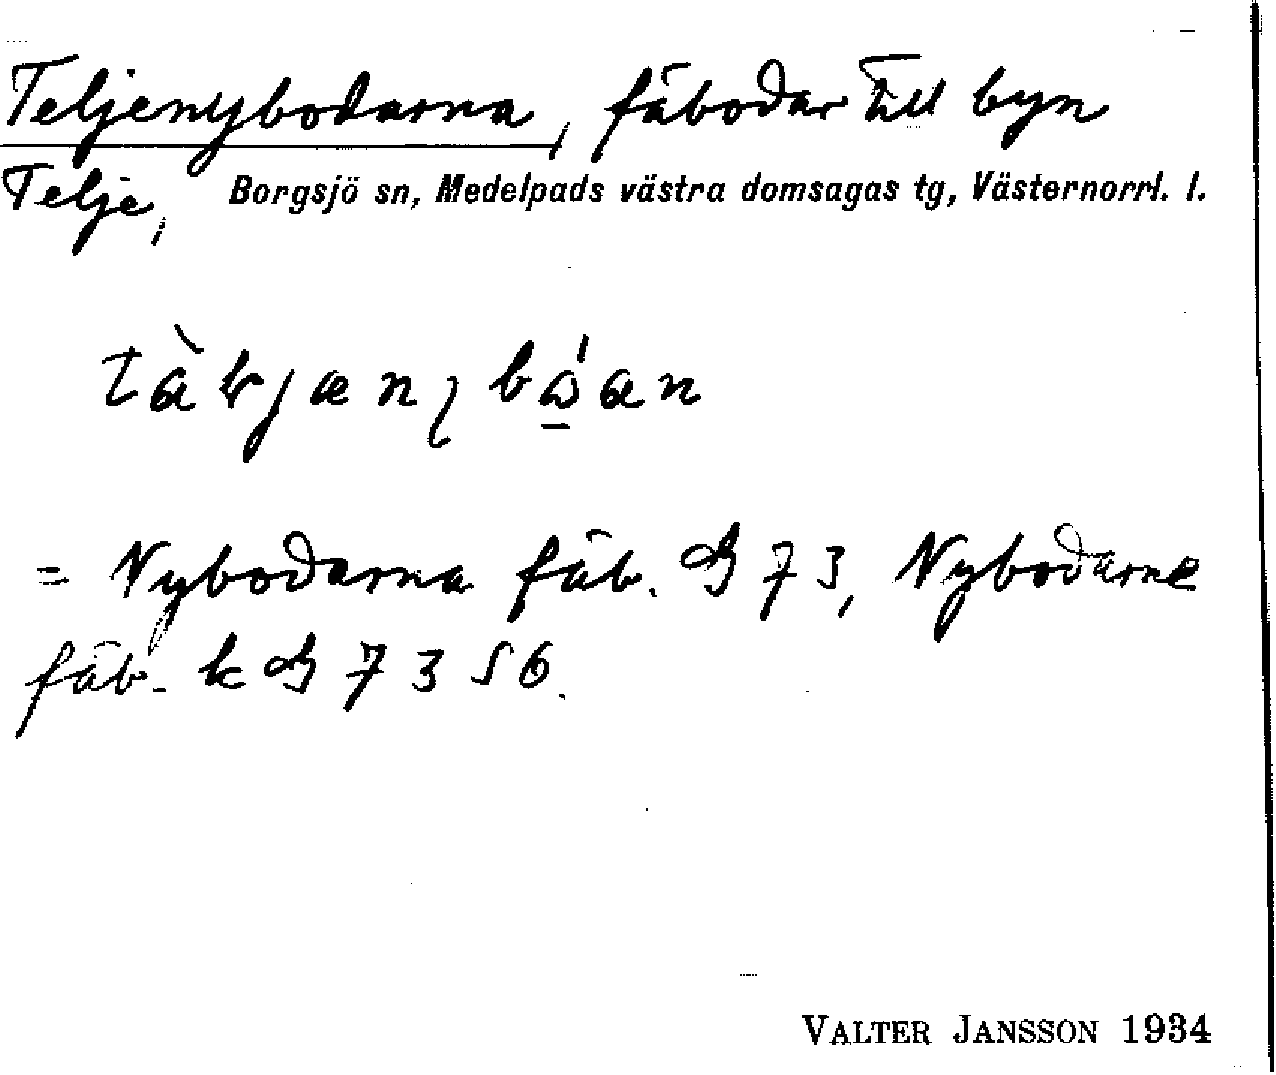 Teljenybodarna, fäbodar till byn
Telje, Borgsjö sn, Medelpads västra domsagas tg, Västernorrl. l.
= Nybodarna fäb. G 73, Nybodarne
fäb. k G 73 S 6.
VALTER JANSSON 1934